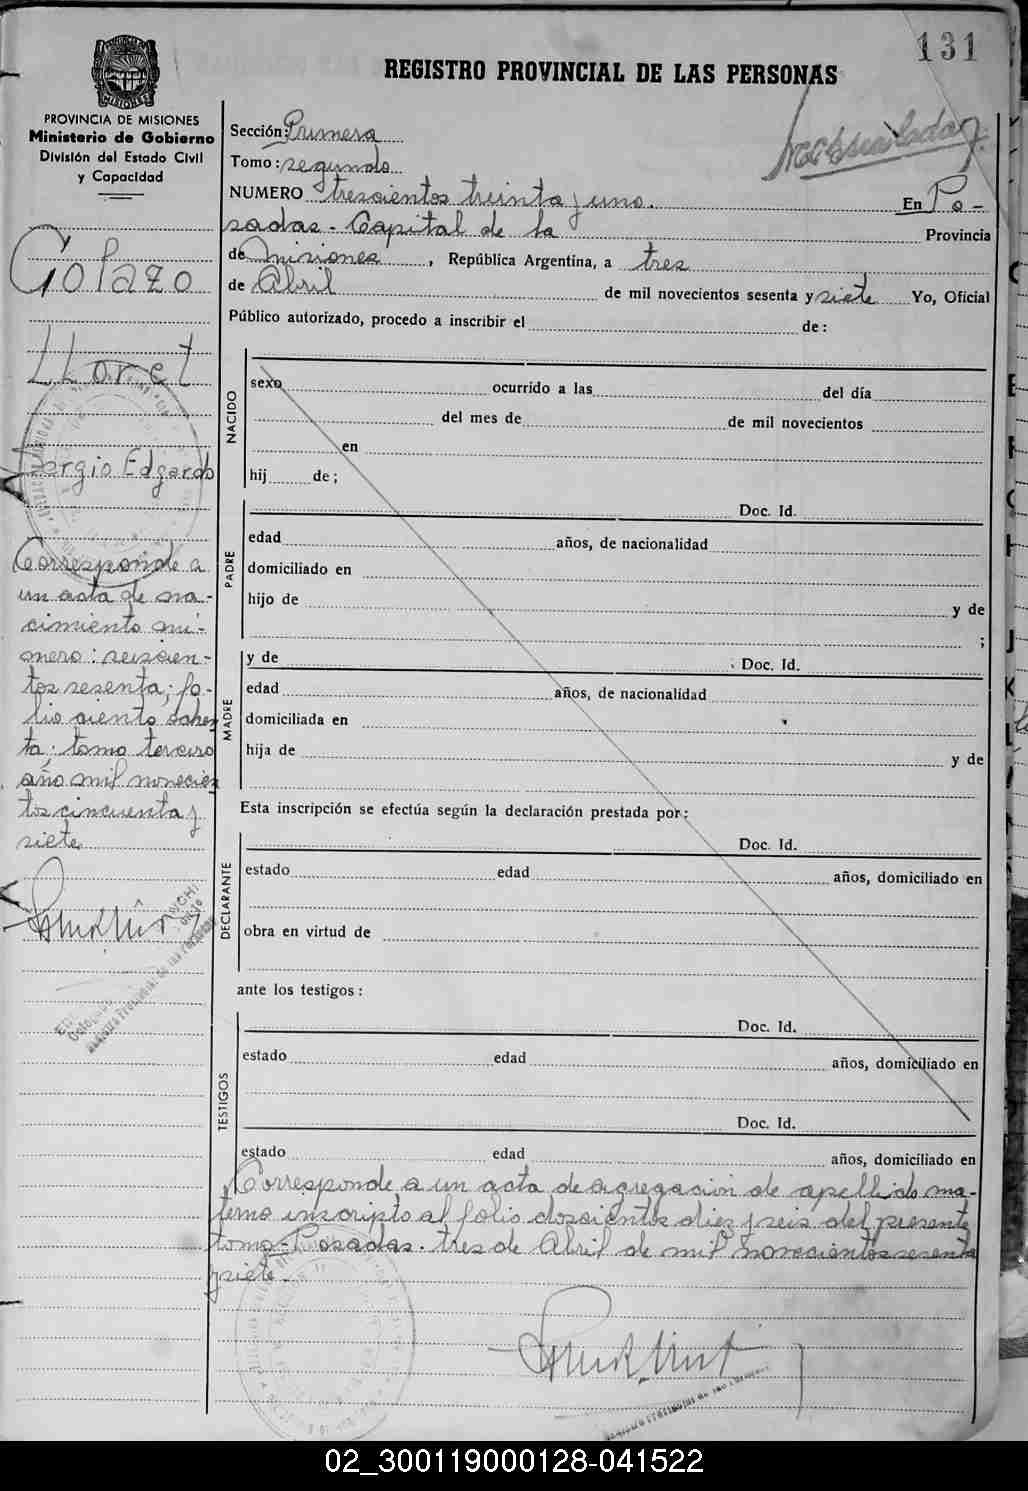 131
REGISTRO PROVINCIAL DE LAS PERSONAS
PROVINCIA DE MISIONES
Ministerio de Gobierno
División del Estado Civil
y Capacidad
Colazo
LLoret
Sergio Edgardo
Corresponde a
un acta de na-
cimiento nú-
mero: seiscien-
tos sesenta; fo-
lio ciento ochen
ta; tomo tercero
año mil novecien
tos cincuenta y
siete
Sección: Primera
Tomo: segundo
NUMERO trescientos treinta y uno. En Po-
sadas - Capital de la Provincia
de Misiones, República Argentina, a tres
de Abril de mil novecientos sesenta y siete Yo, Oficial
Público autorizado, procedo a inscribir el de:
NACIDO
sexo ocurrido a las del día
del mes de de mil novecientos
en
hij de;
PADRE
Doc. Id.
edad años, de nacionalidad
domiciliado en
hijo de y de
;
MADRE
y de Doc. Id.
edad años, de nacionalidad
domiciliada en
hija de y de
Esta inscripción se efectúa según la declaración prestada por:
DECLARANTE
Doc. Id.
estado edad años, domiciliado en
obra en virtud de
ante los testigos:
TESTIGOS
Doc. Id.
estado edad años, domiciliado en
Doc. Id.
estado edad años, domiciliado en
Corresponde a un acta de agregación de apellido ma-
terno inscripto al folio doscientos diez y seis del presente
tomo - Posadas. tres de Abril de mil novecientos sesenta
y siete.
02_300119000128-041522